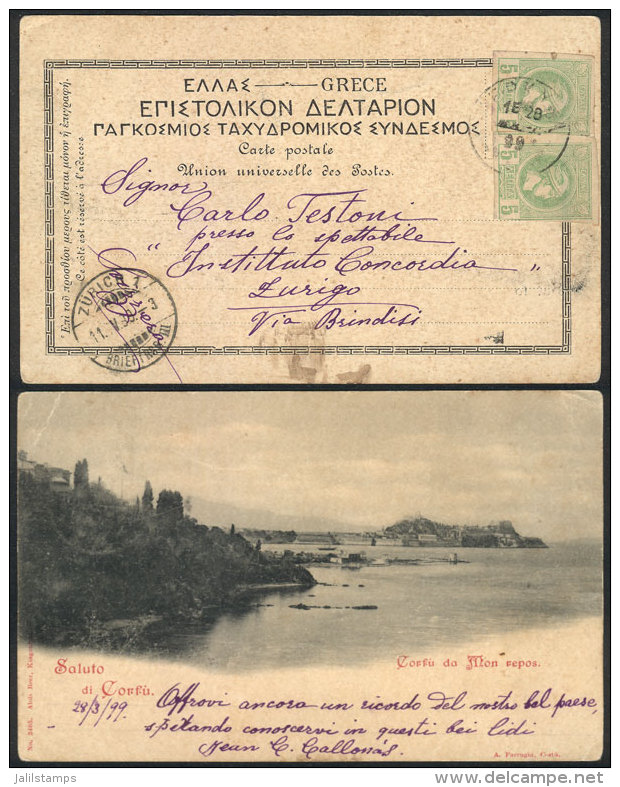 ΕΛΛΑΣ — GRECE
ΕΠΙΣΤΟΛΙΚΟΝ ΔΕΛΤΑΡΙΟΝ
ΠΑΓΚΟΣΜΙΟΣ ΤΑΧΥΔΡΟΜΙΚΟΣ ΣΥΝΔΕΣΜΟΣ
Carte postale
Union universelle des Postes.
Ἐπὶ τοῦ προσθίου μέρους τίθεται μόνον ἡ ἐπιγραφή.
Ce côté est réservé à l'adresse.
Signor
Carlo Testoni
presso lo spettabile
"Instituto Concordia"
Zurigo
Via Brindisi
ZÜRICH 1
11. V
BRIEFTRÄGER
5 5
5 5
Saluto
di Corfù.
Corfù da Mon repos.
28/3/99. Offrovi ancora un ricordo del nostro bel paese,
spetando conoscervi in questi bei lidi
Jean C. Callonás.
A. Farrugia, Corfù.
delcampe.net
jalilstamps